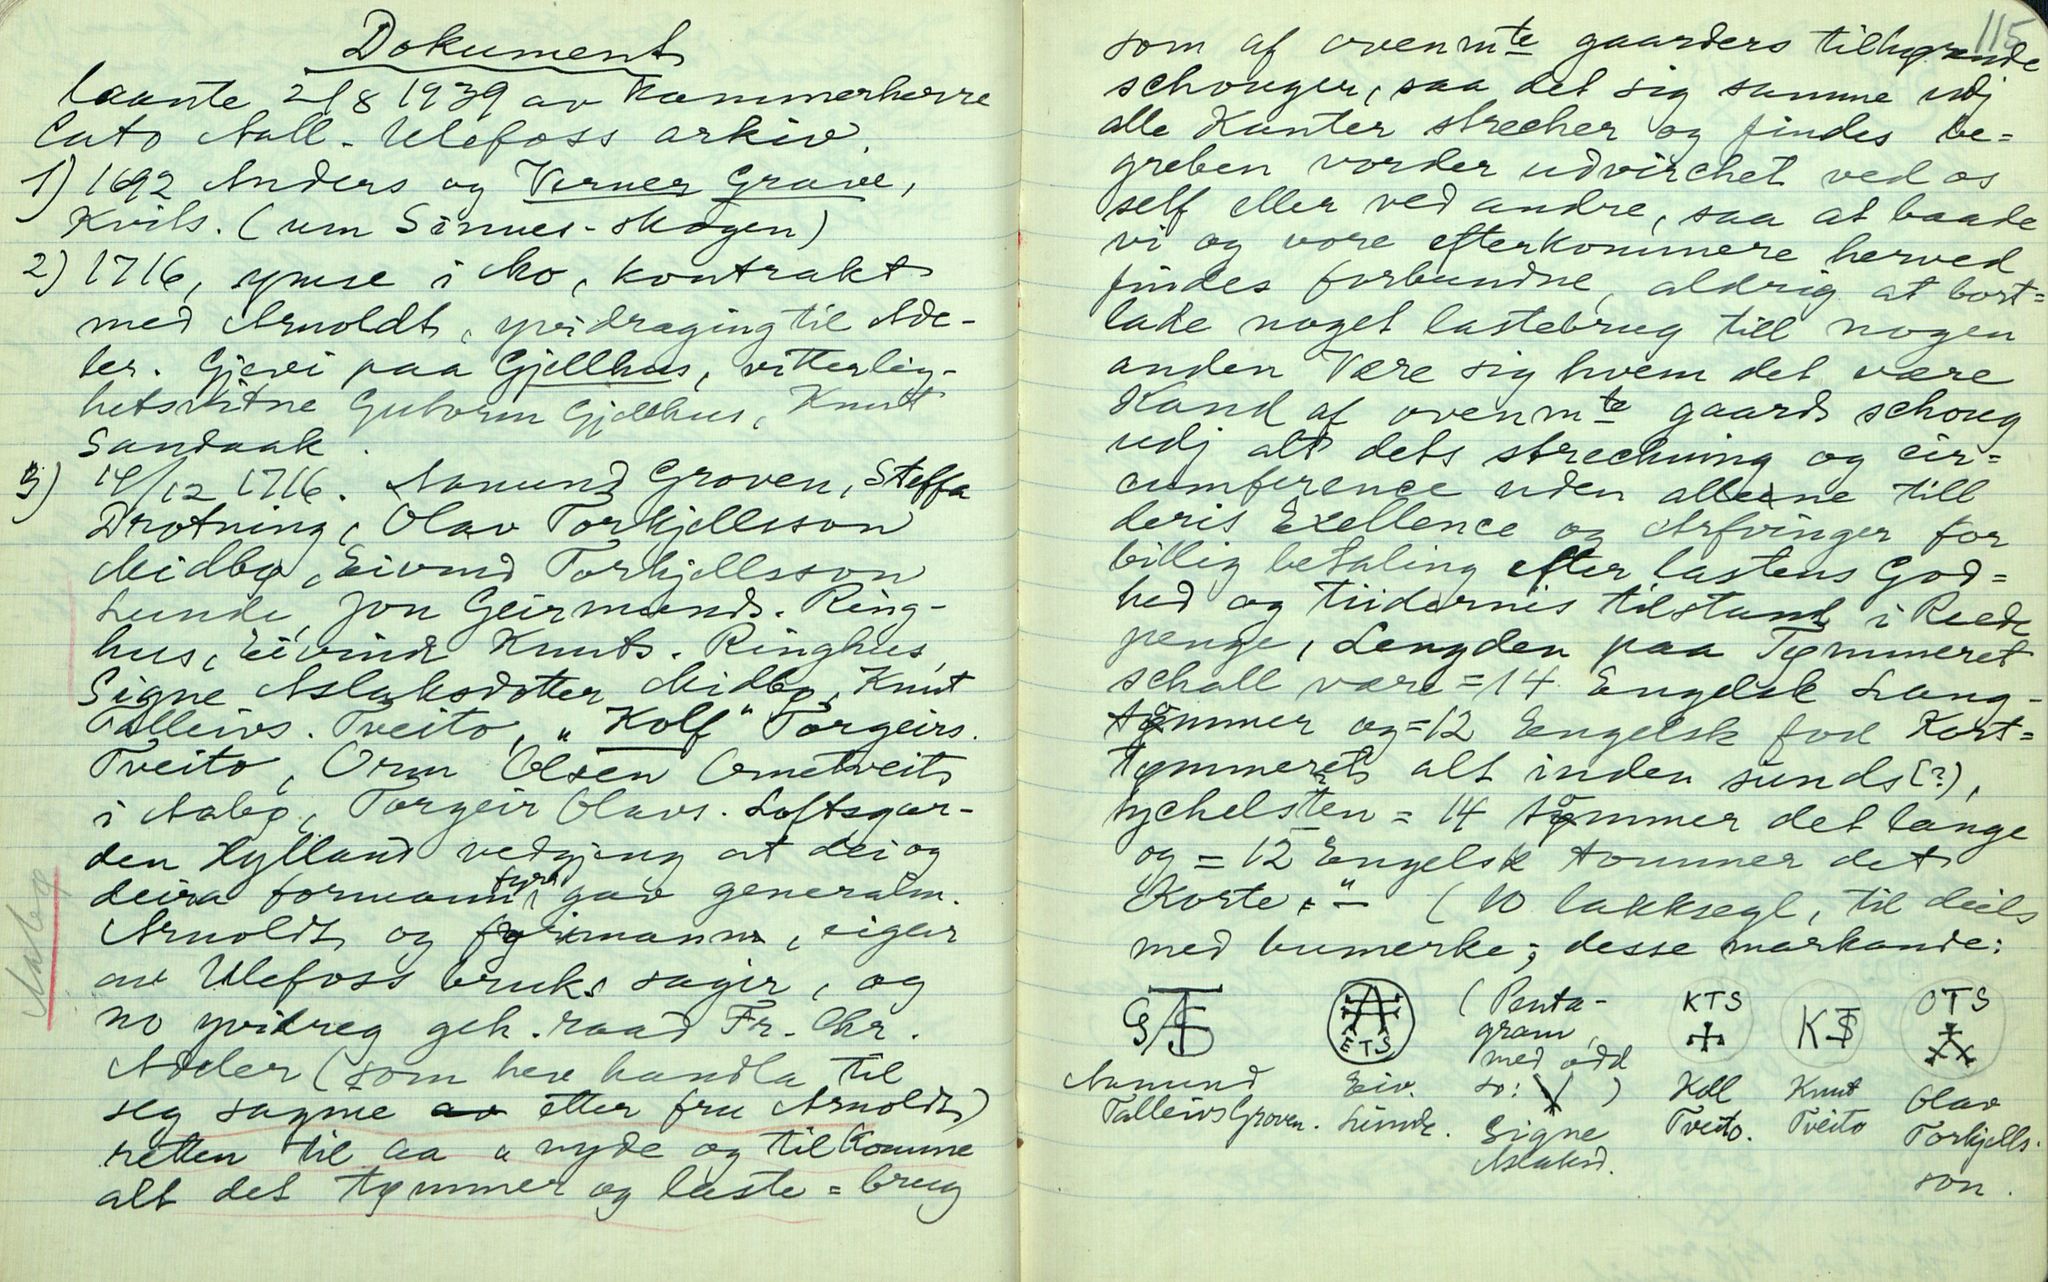 Dokument
laante 2/8 1939 av Kammerherre
Cato Aall - Ulefoss arkiv.
1) 1692 Anders og Verner Grave,
Kvits. (um Sinnes-skogen)
2) 1716, ymse i Mo, kontrakt
med Arnoldt, yvidraging til Ade-
ler. Gjevi paa Gjellhus, vitterleg-
hetsvitne Gutorm Gjellhus, Knut
Sandaak.
3) 14/12 1716. Aamund Groven, Steffa
Drotning, Olav Torkjellsson
Midbø, Eivind Torkjellsson
Lunde, Jon Geirmunds. Ring-
hus, Eivind Knuts. Ringhus,
Signe Aslaksdotter Midbø, Knut
Talleivs. Tveito, "Kolf" Torgeirs.
Tveito, Orm Olsen Ometveit
i Aabø, Torgeir Olavs. Loftsgar-
den Hylland vedgjeng at dei og
deira formenn fyrr gav generalm.
Arnoldt og formann, eigar
av Ulefoss bruks sager, og
no yvidreg geh. raad Fr. Chr.
Adeler (som hev handla til
seg sagine av etter fru Arnoldt)
retten til aa "nyde og tilkomme
alt det tømmer og laste=brug
Aabø
115
som af ovenmte gaarders tilhørende
schouger, saa det sig samme udj
alle Kanter strecher og findes be=
greben vorder udvirchet ved os
self eller ved andre, saa at baade
vi og vore efterkommere herved
findes forbundne, aldrig at bort=
lade noget lastebrug till nogen
anden Være sig hvem det være
Kand af ovenmte gaards schoug
udj alt dets strechning og cir=
cumference uden alleene till
deris Exellence og Arfvinger for
billig betaling efter lastens God=
hed og tiidernis tilstand i Reede
penge, Lengden paa Tømmeret
schall være = 14 Engelsk Lang-
tømmer og = 12 Eengelsk fod Kort=
tømmeret alt inden sunds (?),
tychelsten = 14 tommer det lange
og = 12 Engelsk tommer det
Korte." — (10 lakksegl, til deels
med bumerke; desse markande:
Aamund
Talleivs Groven.
ETS
Eiv.
Lunde.
(Penta-
gram
med odd
so: )
Signe
Aslaksd.
KTS
Koll
Tveito.
KTS
Knut
Tveito
OTS
Olav
Torkjells-
son.